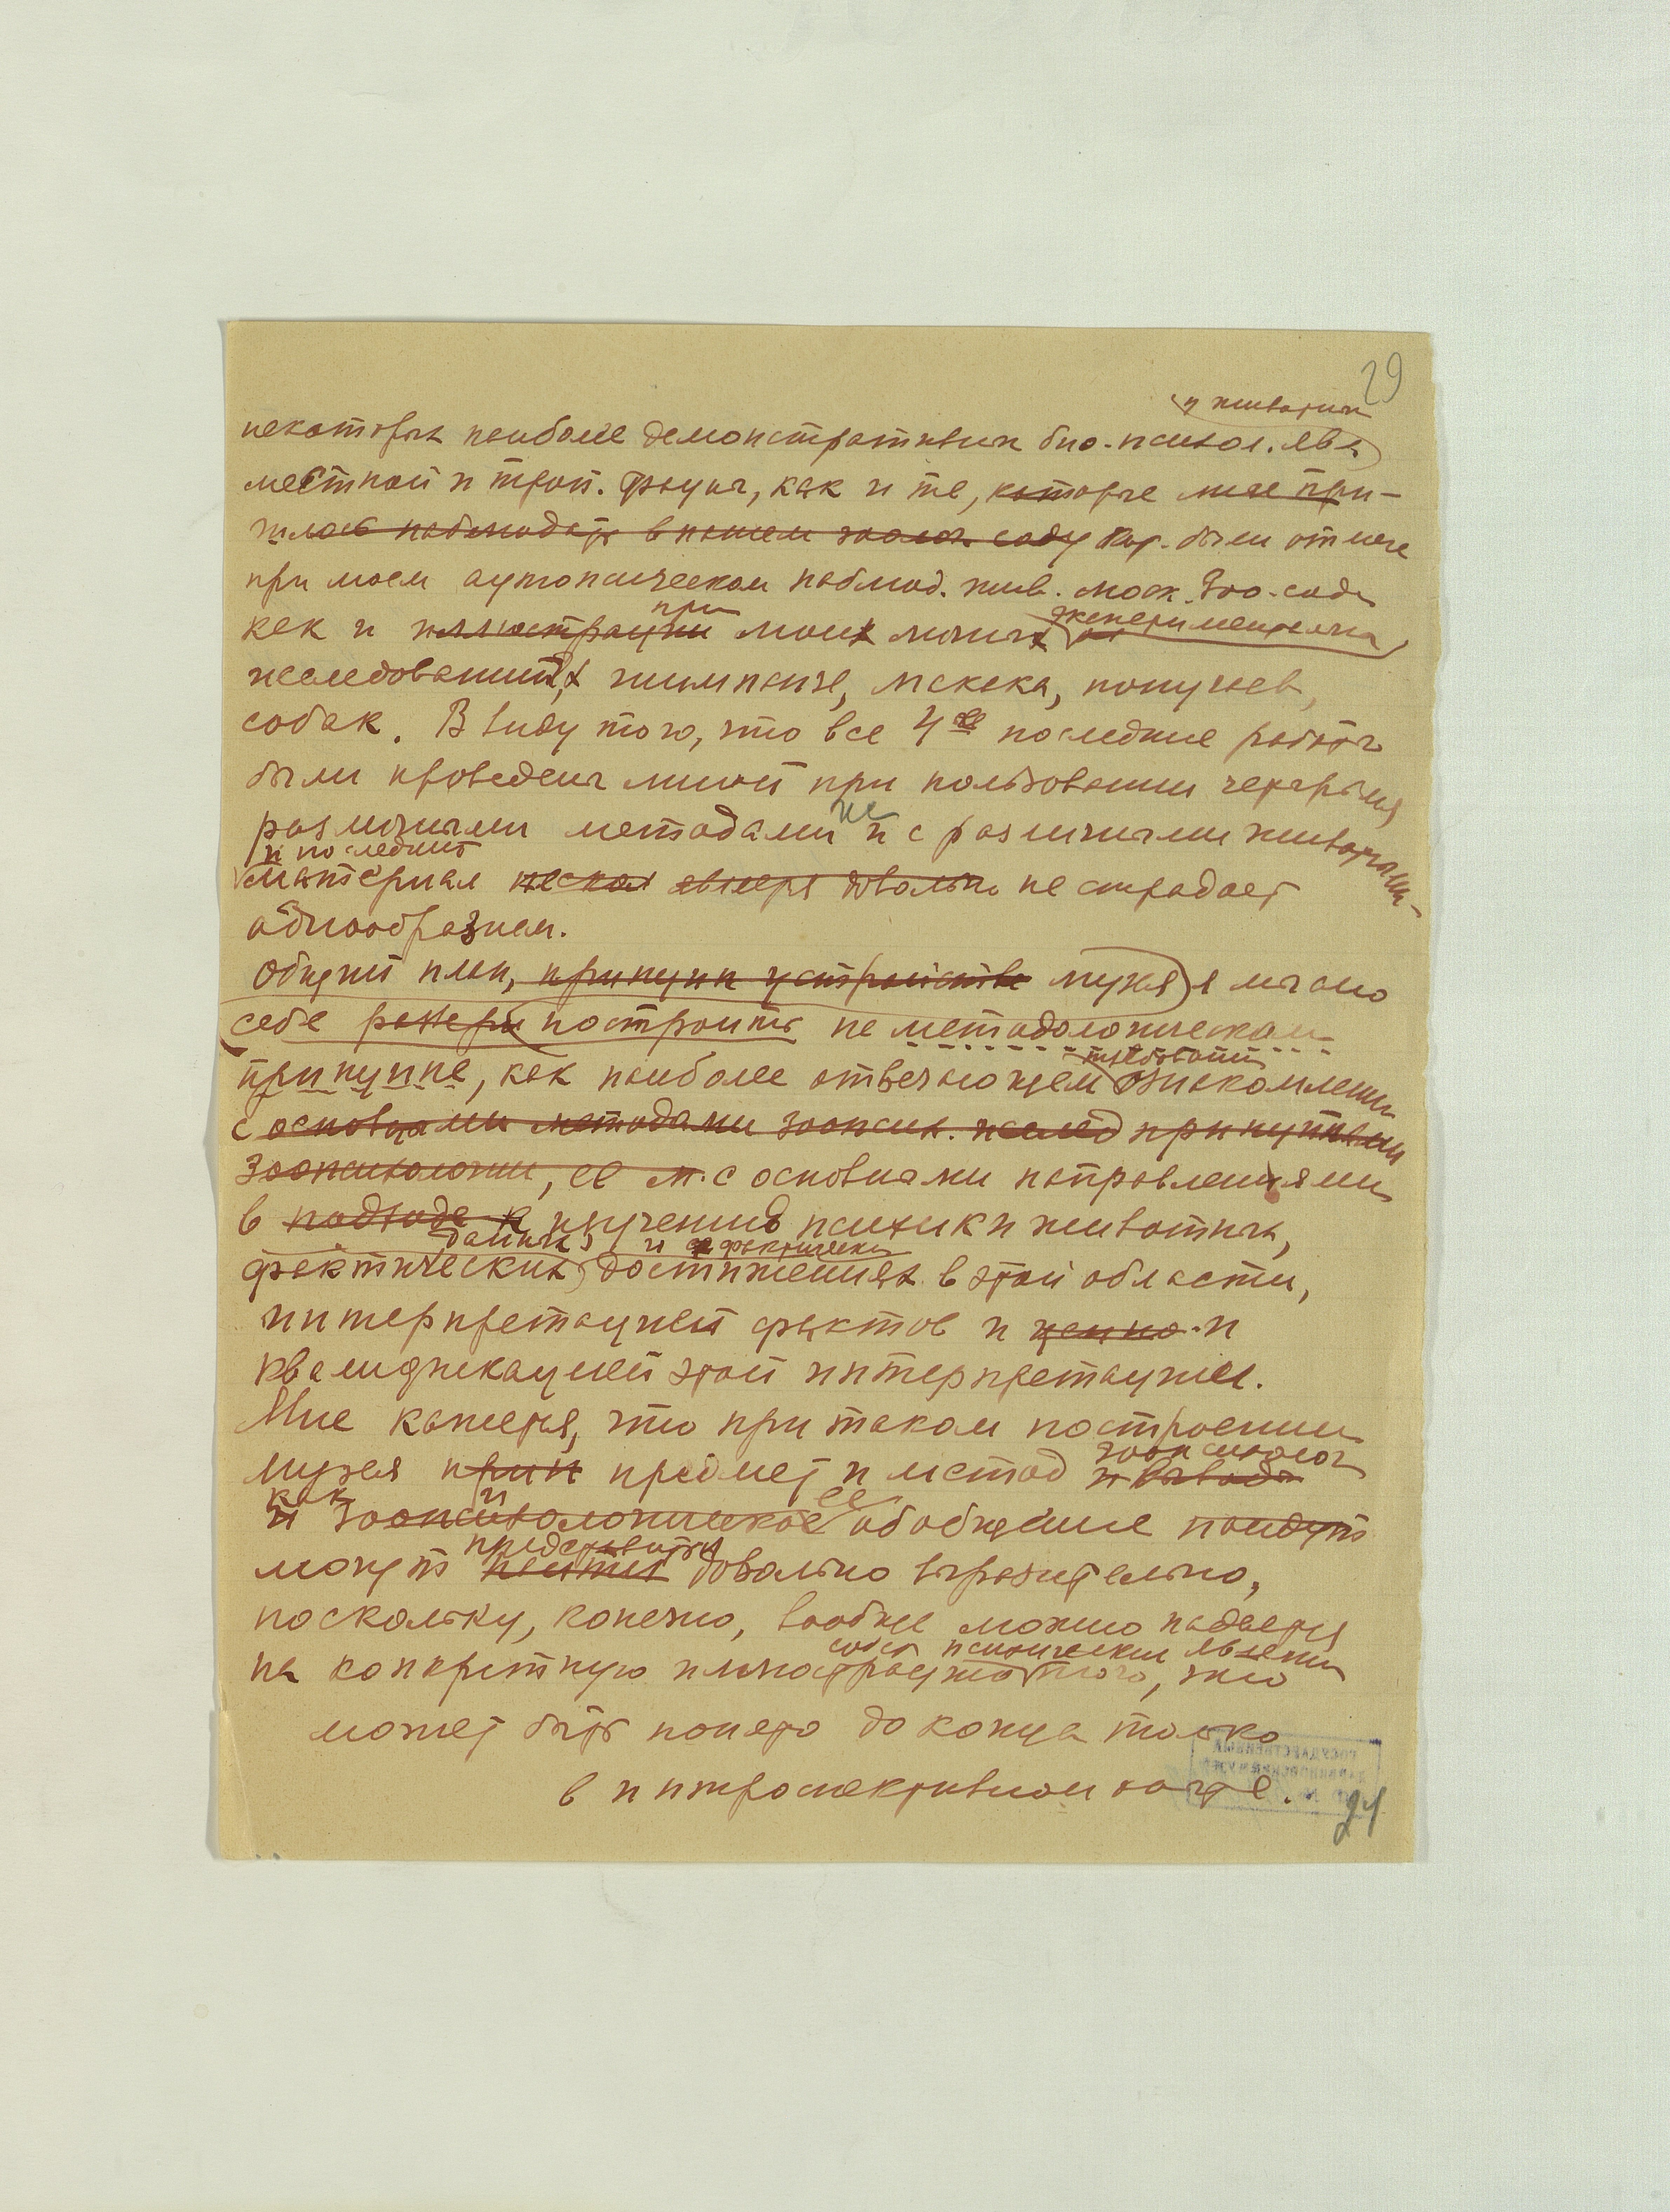 29
и животных
некоторых наиболее демонстративных био-психол. явл.
местной и троп. фауны, как и те, которые мне при-
шлось наблюдать в нашем зоолог. саду кот. были отмече
при моем аутопсическом наблюд. жив. моск. Зоо-сада
при экспериментальна
как и иллюстрации моих личных
исследований, х шимпанзе, макака, попугаев,
собак. Ввиду того, что все 4 последние работы
были проведены мной при пользовании четырьмя
не
различными методами и с различными животными-
и последний
материал не страдает
однообразием.
Общий план, принцип устройства музея я мыслю
себе построить на методологическом
требованию
принципе, как наиболее отвечающем ознакомлению
с основными методами зоопсих. исслед принципами
зоопсихологии, ее м. с основными направлениями
в подходе к изучению психики животных,
данных и фактически
фактических достижениях в этой области,
интерпретацией фактов и ценно- и
квалификацией этой интерпретации.
Мне кажется, что при таком построении
зоопсихолог
музея прин предмет и метод и выводы
как и ее
и зоопсихологическое обобщение пойдут
представиться
могут довольно выразительно,
поскольку, конечно, вообще можно надеяться
психических явлени
на конкретную иллюстрацию того, что
может быть понято до конца только
в интроспективном ходе.
24